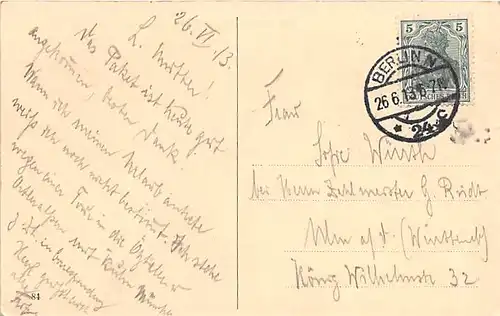 26. VI. 13.
L. Mutter!
Das Paket ist heute gut
angekommen, besten Dank.
Wann ich meinen Urlaub antrete
weiß ich noch nicht bestimmt. Ich stehe
wegen einer Tour in die
mit
z. Zt. in
Herzl.
81
5 5
BERLIN N
26.6.13.6-7N
* 24 c
Frau
Sofie Würth
bei Herrn Zahlmeister G. Rudt
Ulm a/d (Württemb)
König Wilhelmstr 32